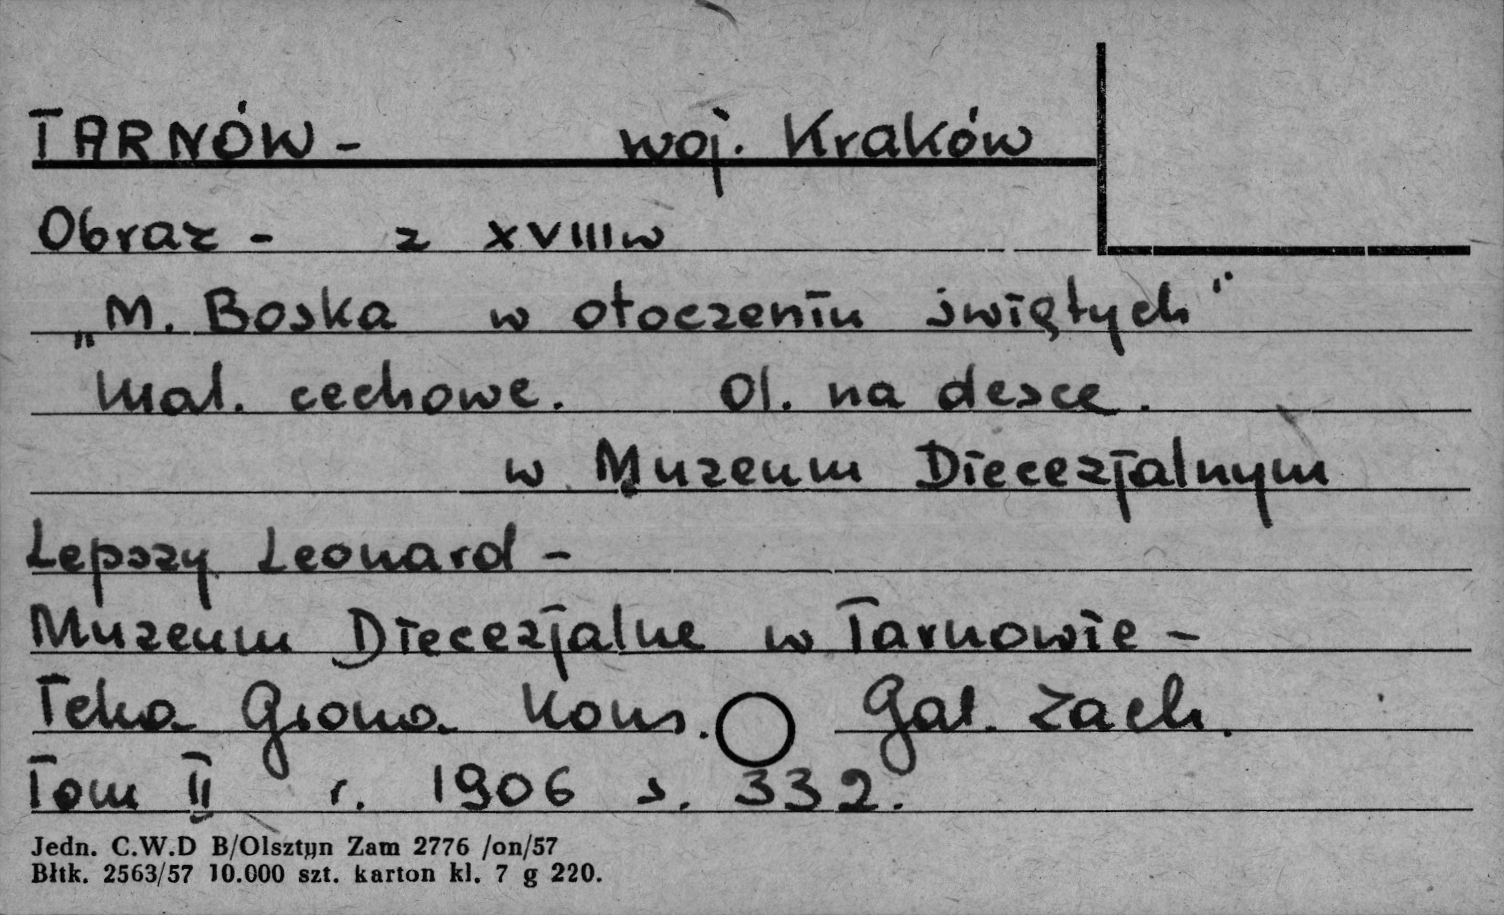 TARNÓW - woj. Kraków
Obraz - z XVIII w
„M. Boska w otoczeniu świętych"
Mal. cechowe. Ol. na desce.
w Muzeum Diecezjalnym
Lepszy Leonard -
Muzeum Diecezjalne w Tarnowie -
Teka Grona Kons. Gal. Zach.
Tom II r. 1906 s. 332.
Jedn. C.W.D B/Olsztyn Zam 2776 /on/57
Błtk. 2563/57 10.000 szt. karton kl. 7 g 220.